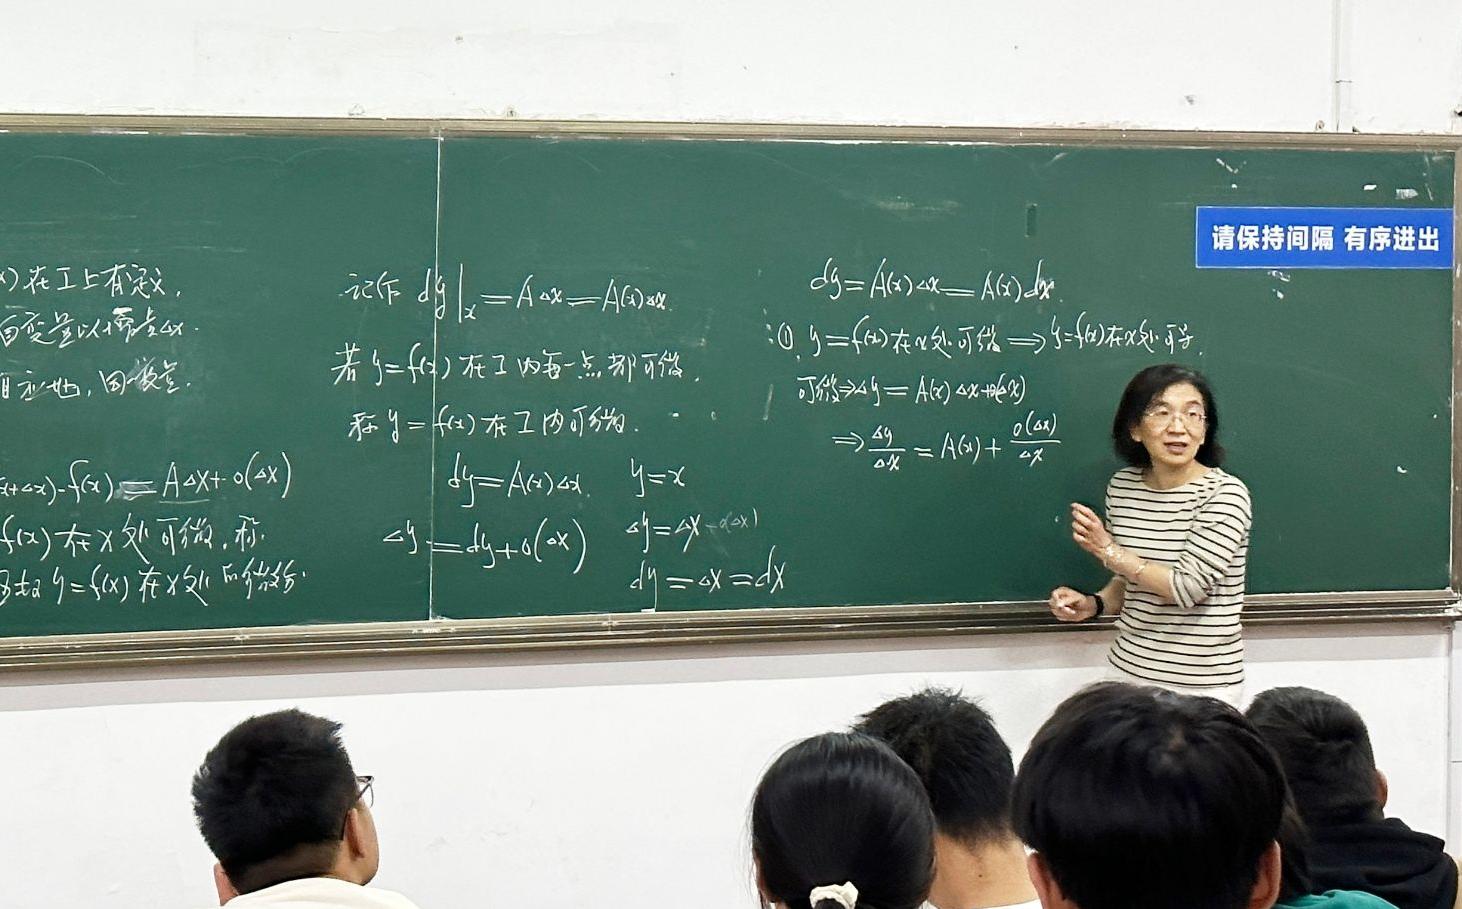 x)在I上有定义,
自变量以增量△x.
x+△x)-f(x)=A△x+o(△x)
f(x)在x处可微.称
y=f(x)在x处的微分.
记作 dy|x=A△x=A(x)△x.
若y=f(x)在I内每一点都可微,
称y=f(x)在I内可微.
dy=A(x)△x.
△y=dy+o(△x)
y=x
△y=△x
dy=△x=dx
dy=A(x)△x=A(x)dx.
①. y=f(x)在x处可微⟹y=f(x)在x处可导.
可微⇒△y=A(x)△x+o(△x)
⟹△y/△x=A(x)+o(△x)/△x
请保持间隔 有序进出